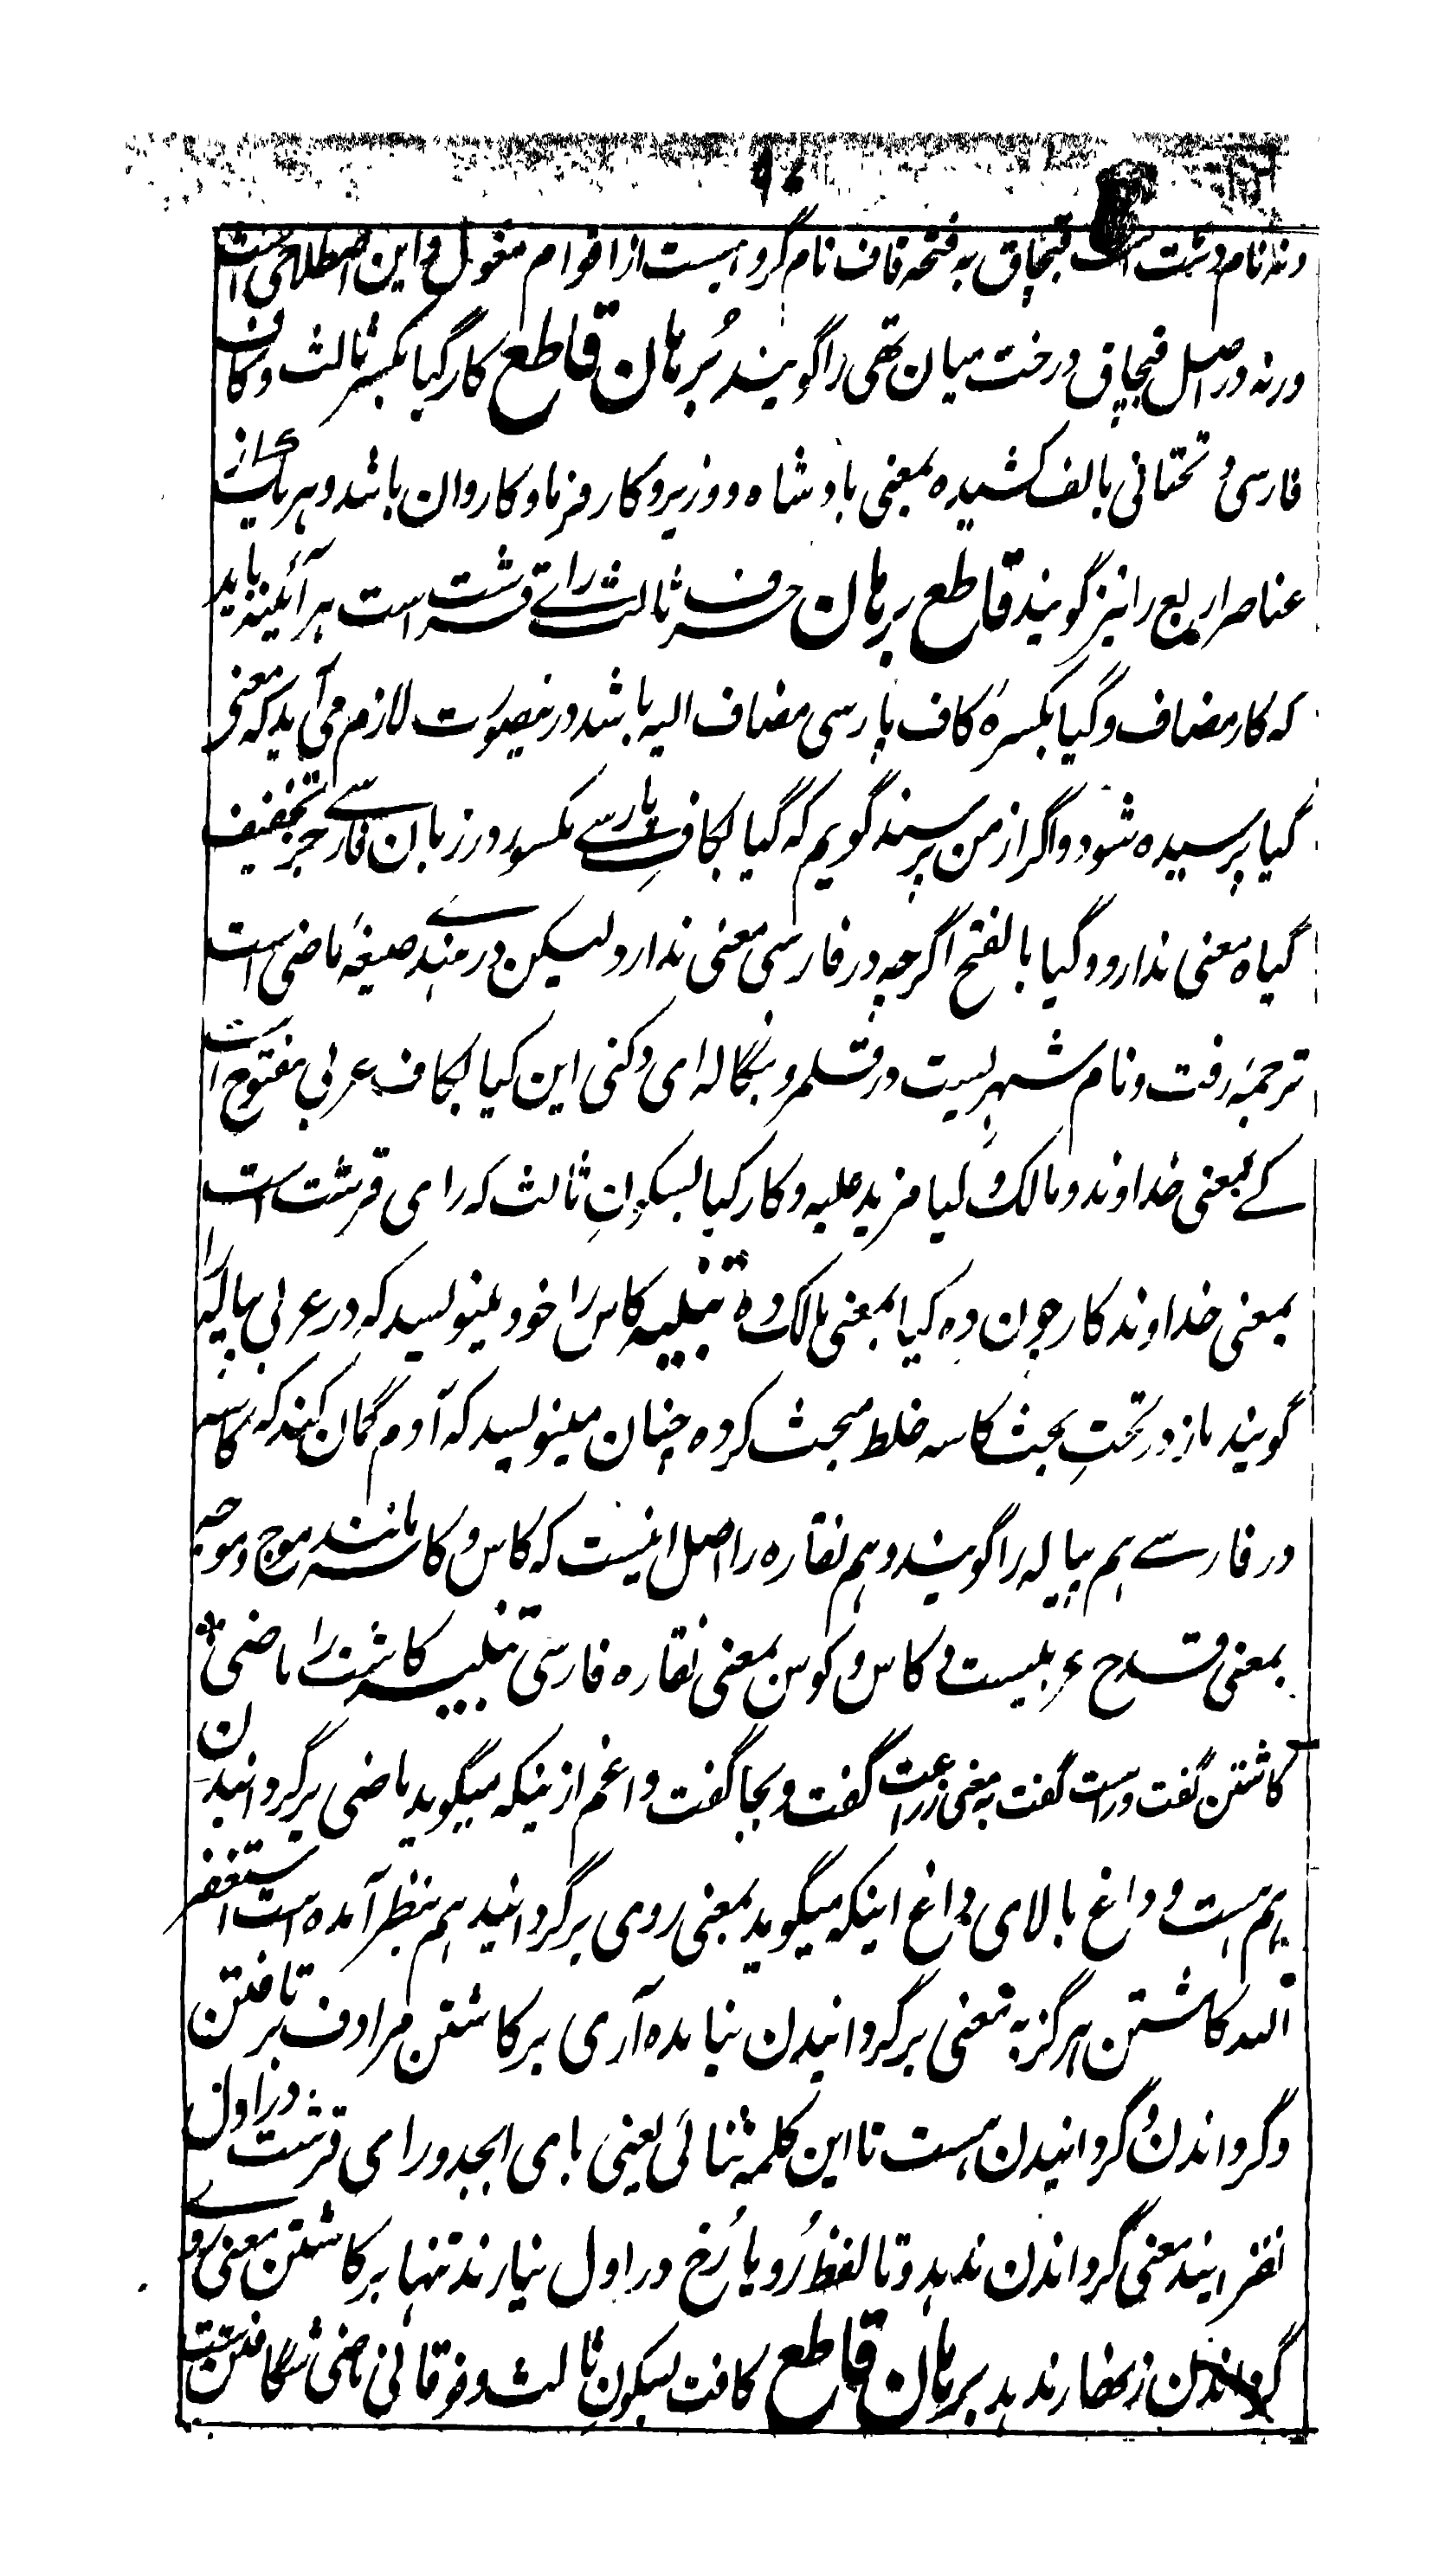 ۹۲
و نه نام دشت است قبچاق به فتحه قاف نام گروهیست از اقوام مغول و این اصطلاحی است
ورنه در اصل قبچاق درخت میان تهی را گویند بُرهان قاطع کارگیا بکسر ثالث و کاف
فارسی و تحتانی بالف کشیده بمعنی بادشاه و وزیر و کارفرما و کاروان باشد و هر یک از
عناصر اربع را نیز گویند قاطع برهان حرف ثالث رائے قرشت است هر آئینه باید
که کار مضاف و گیا بکسرهٔ کاف پارسی مضاف الیه باشد درینصورت لازم می آید که معنی
گیا پرسیده شود و اگر از من پرسند گویم که گیا بکافِ پارسے مکسور در زبان فارسے جز تخفیف
گیاه معنی ندارد و گیا بالفتح اگرچه در فارسی معنی ندارد لیکن در هندے صیغهٔ ماضی است
ترجمهٔ رفت و نام شهریست در قلمرو بنگاله ای دکنی این کیا بکاف عربی مفتوح است
کے بمعنی خداوند و مالک و کیا مزید علیه و کارکیا بسکونِ ثالث که رای قرشت است
بمعنی خداوند کار چون ده کیا بمعنی مالک ده تنبیه کاس را خود مینویسد که در عربی پیاله را
گویند باز در تحتِ بحث کاسه خلط مبحث کرده چنان مینویسد که آدم گمان کند که کاسه
در فارسے هم پیاله را گویند و هم نقاره را اصل اینست که کاس و کاسه مانند موج و موجه
بمعنی قدح عربیست و کاس و کوس بمعنی نقاره فارسی تنبیه کاشت را ماضی
کاشتن گفت و راست گفت به معنی زراعت گفت و بجا گفت و اغم ازینکه میگوید ماضی برگردانیدن
هم هست و داغ بالای داغ اینکه میگوید بمعنی روی برگردانید هم بنظر آمده است استغفر
الله کاشتن هرگز به معنی برگردانیدن نیامده آری برکاشتن مرادف برتافتن
و گرداندن و گردانیدن هست تا این کلمه ثنائی یعنی بای ابجد و رای قرشت در اول
نفزایند معنی گرداندن ندهد و تا لفظ رُو یا رُخ در اول نیارند تنها برکاشتن معنی روے
گرداندن زنهار ندهد برهان قاطع کافت بسکونِ ثالث و فوقانی ماضی شگافتن است